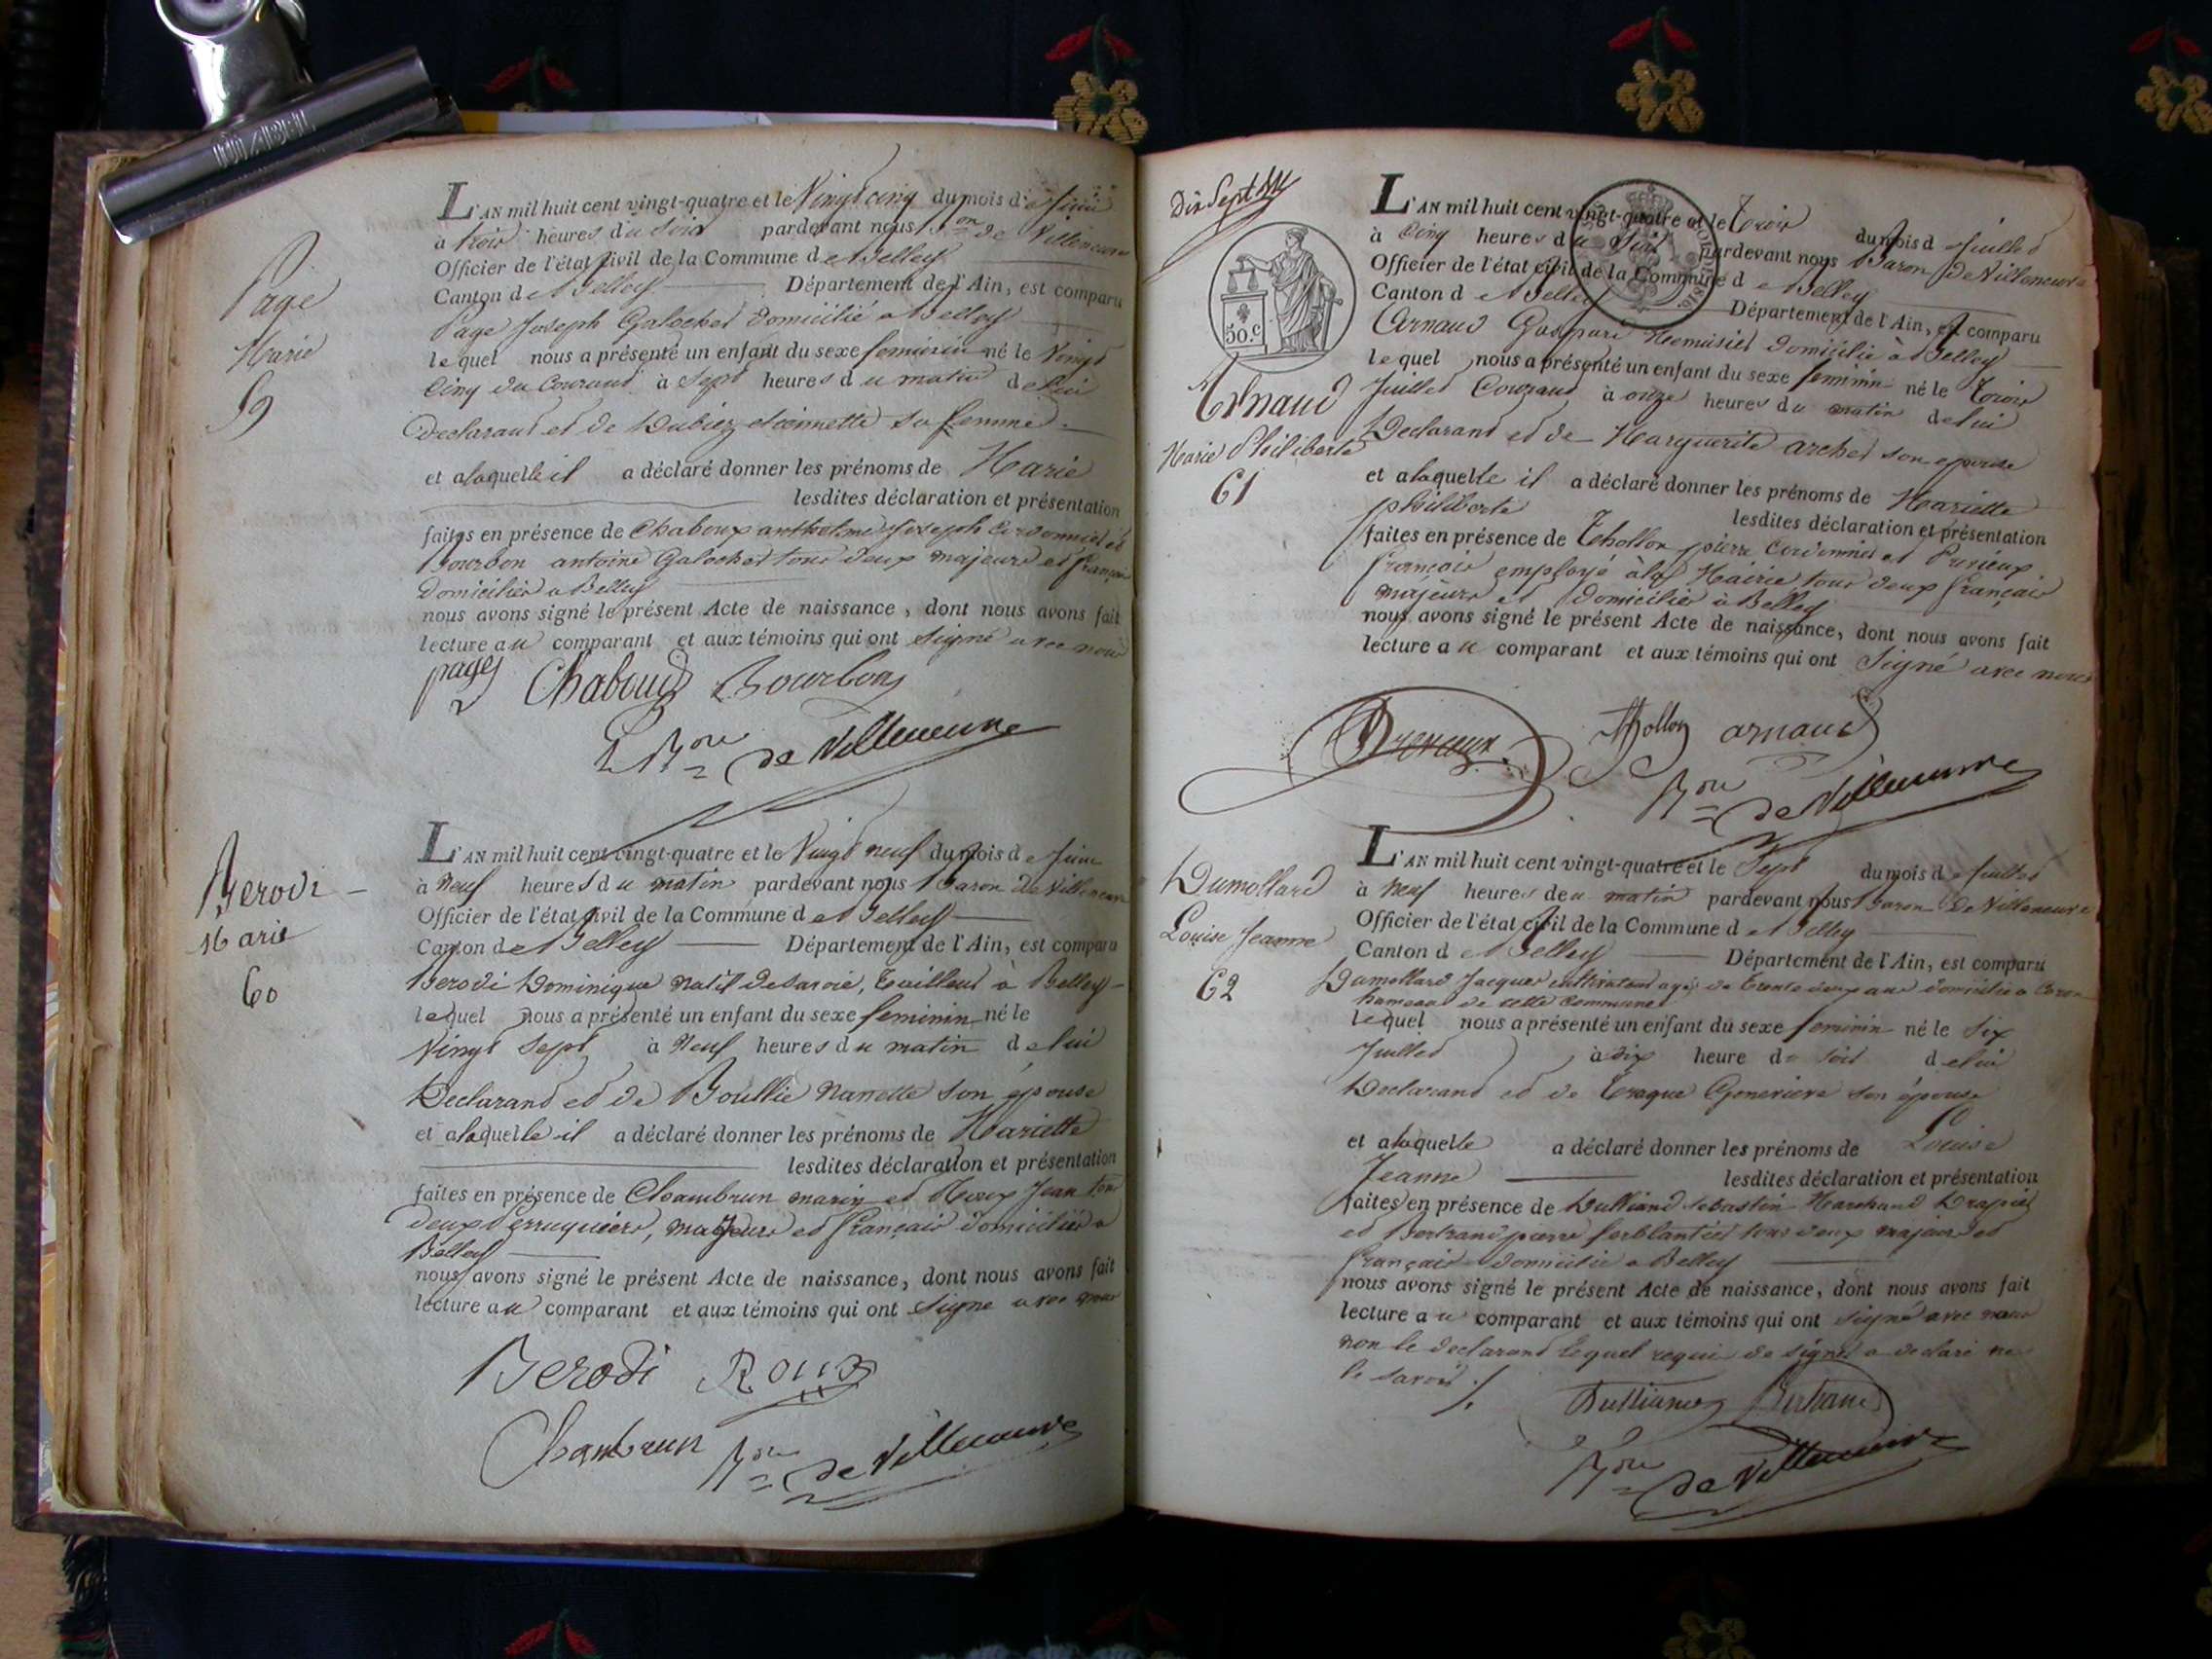 Page
Marie
59
L'AN mil huit cent vingt-quatre et le Vingt cinq du mois de juin
à trois heures du soir pardevant nous Bon de Villeneuve
Officier de l'état civil de la Commune de Belley
Canton de Belley Département de l'Ain, est comparu
Page Joseph Galochet domicilié a Belley
lequel nous a présenté un enfant du sexe feminin né le Vingt
Cinq du Courant à Sept heures du matin de lui
Declarant et de Dubiez sa femme
et a laquelle il a déclaré donner les prénoms de Marie
lesdites déclaration et présentation
faites en présence de Chaboux anthelme Joseph Cordonnier et
Bourbon antoine Galochet tous deux majeurs et français
domiciliés a Belley
nous avons signé le présent Acte de naissance, dont nous avons fait
lecture au comparant et aux témoins qui ont signé avec nous
page Chaboux Bourbon
Bon de Villeneuve
Berodi
Marie
60
L'AN mil huit cent vingt-quatre et le Vingt neuf du mois de Juin
à Neuf heures du matin pardevant nous Baron de Villeneuve
Officier de l'état civil de la Commune de Belley
Canton de Belley Département de l'Ain, est comparu
Berodi Dominique natif de Savoie, tailleur à Belley
lequel nous a présenté un enfant du sexe feminin né le
Vingt Sept à Neuf heures du matin de lui
Declarant et de Boullie Nanette son épouse
et a laquelle il a déclaré donner les prénoms de Mariette
lesdites déclaration et présentation
faites en présence de Chambrun marin et Roux Jean tous
deux perruquiers, majeurs et français domiciliés a
Belley
nous avons signé le présent Acte de naissance, dont nous avons fait
lecture au comparant et aux témoins qui ont signé avec nous
Berodi Roux
Chambrun Bon de Villeneuve
Dix Sept
50.c
Arnaud
Marie Philiberte
61
L'AN mil huit cent vingt-quatre et le trois du mois de Juillet
à Cinq heures du soir pardevant nous Baron de Villeneuve
Officier de l'état civil de la Commune de Belley
Canton de Belley Département de l'Ain, est comparu
Arnaud Gaspard Menuisier domicilié à Belley
lequel nous a présenté un enfant du sexe feminin né le trois
Juillet Courant à onze heures du matin de lui
Declarant et de Marguerite archer son epouse
et a laquelle il a déclaré donner les prénoms de Mariette
philiberte lesdites déclaration et présentation
faites en présence de Thollon pierre Cordonnier et
françois employé à la Mairie tous deux français
majeurs et domiciliés à Belley
nous avons signé le présent Acte de naissance, dont nous avons fait
lecture au comparant et aux témoins qui ont Signé avec nous
Thollon arnaud
Bon de Villeneuve
Dumollard
Louise Jeanne
62
L'AN mil huit cent vingt-quatre et le Sept du mois de Juillet
à Neuf heures deu matin pardevant nous Baron De Villeneuve
Officier de l'état civil de la Commune de Belley
Canton de Belley Département de l'Ain, est comparu
Dumollard Jacques cultivateur agé de trente deux ans domicilié a
hameau de cette Commune
lequel nous a présenté un enfant du sexe feminin né le Six
Juillet à dix heure du soir de lui
Declarant et de Genevieve son épouse
et a laquelle a déclaré donner les prénoms de Louise
Jeanne lesdites déclaration et présentation
faites en présence de Dulliand sebastin Marchand Drapier
et Bertrand pierre ferblantier tous deux majeurs et
français domicilié a Belley
nous avons signé le présent Acte de naissance, dont nous avons fait
lecture au comparant et aux témoins qui ont signé avec nous
non le declarant lequel requis de signer a declaré ne
le savoir
Dulliand Bertrand
Bon de Villeneuve